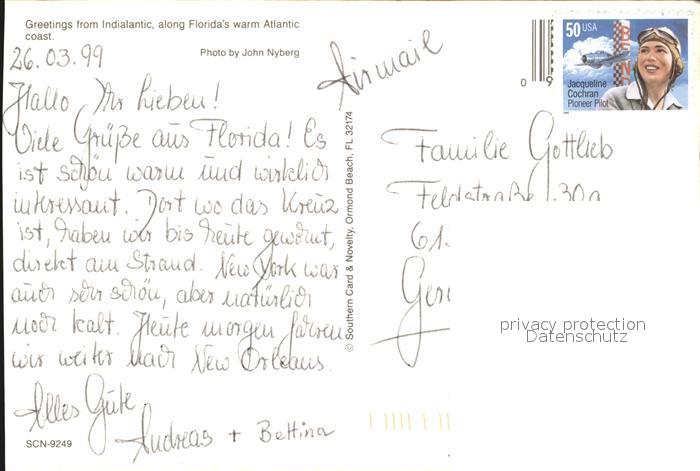 Greetings from Indialantic, along Florida's warm Atlantic
coast.
Photo by John Nyberg
26.03.99
Hallo Ihr Lieben!
Viele Grüße aus Florida! Es
ist schön warm und wirklich
interessant. Dort wo das Kreuz
ist, haben wir bis heute gewohnt,
direkt am Strand. New York war
auch sehr schön, aber natürlich
noch kalt. Heute morgen fahren
wir weiter nach New Orleans.
Alles Gute
Andreas + Bettina
SCN-9249
© Southern Card & Novelty, Ormond Beach, FL 32174
Airmail
0 9
50 USA
Jacqueline
Cochran
Pioneer Pilot
Familie Gottlieb
Feldstraße 30a
61
Ger
privacy protection
Datenschutz